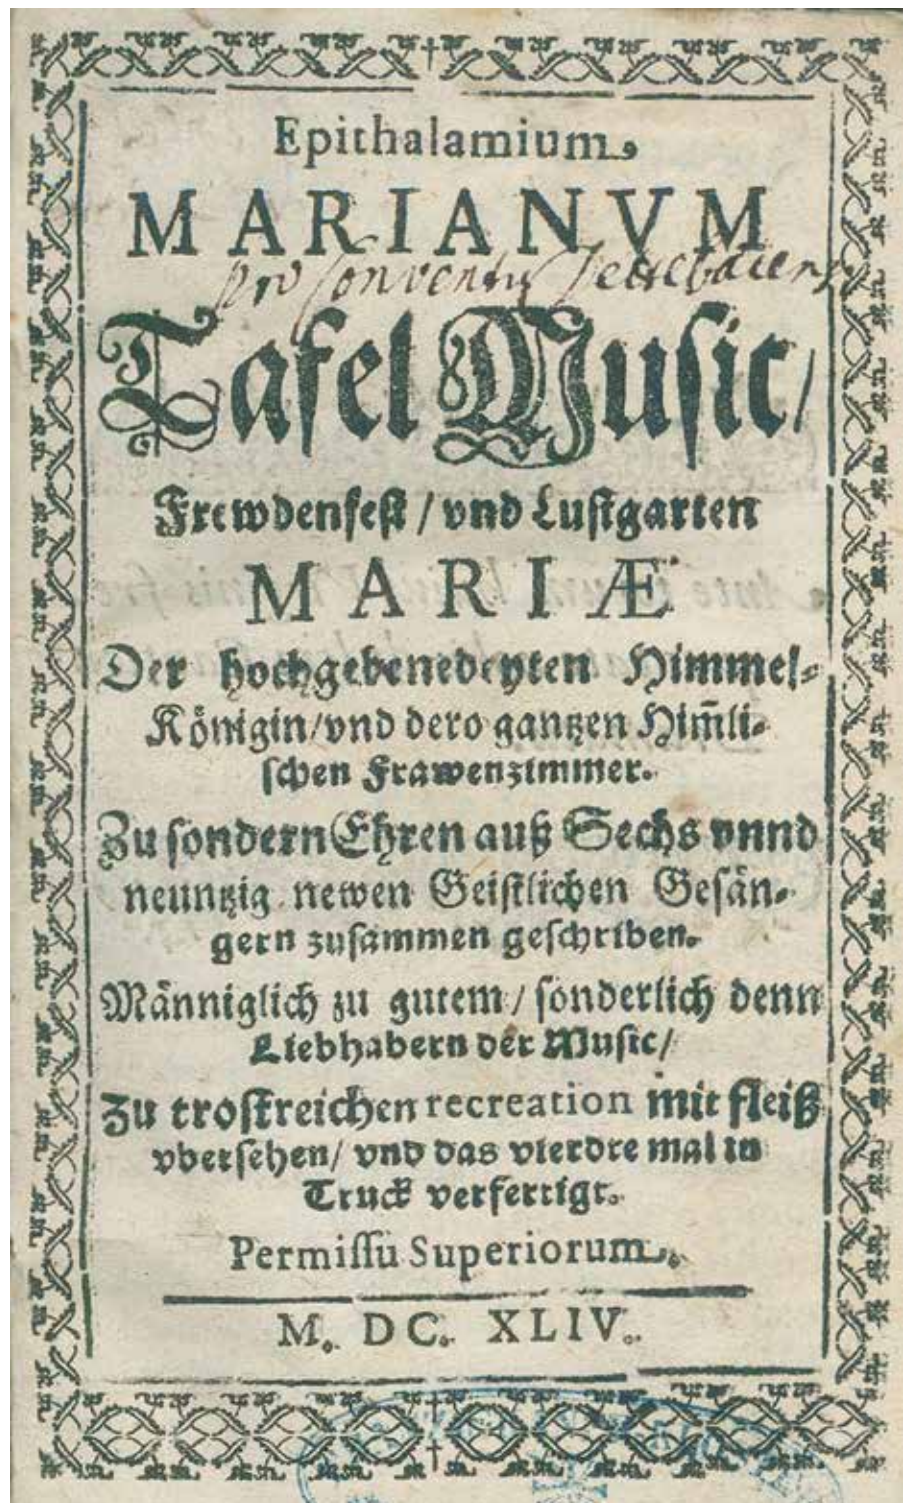 Epithalamium,
MARIANVM
pro Conventu
Tafel Music/
Frewdenfest / vnd Lustgarten
MARIÆ
Der hochgebenedeyten Himmel-
Königin/vnd dero gantzen Him̃li-
schen Frawenzimmer.
Zu sondern Ehren auß Sechs vnnd
neuntzig newen Geistlichen Gesän-
gern zusammen geschriben.
Männiglich zu gutem / sonderlich denn
Liebhabern der Music/
Zu trostreichen recreation mit fleiß
vbersehen/ vnd das vierdte mal in
Truck verfertigt.
Permissu Superiorum.
M. DC. XLIV.